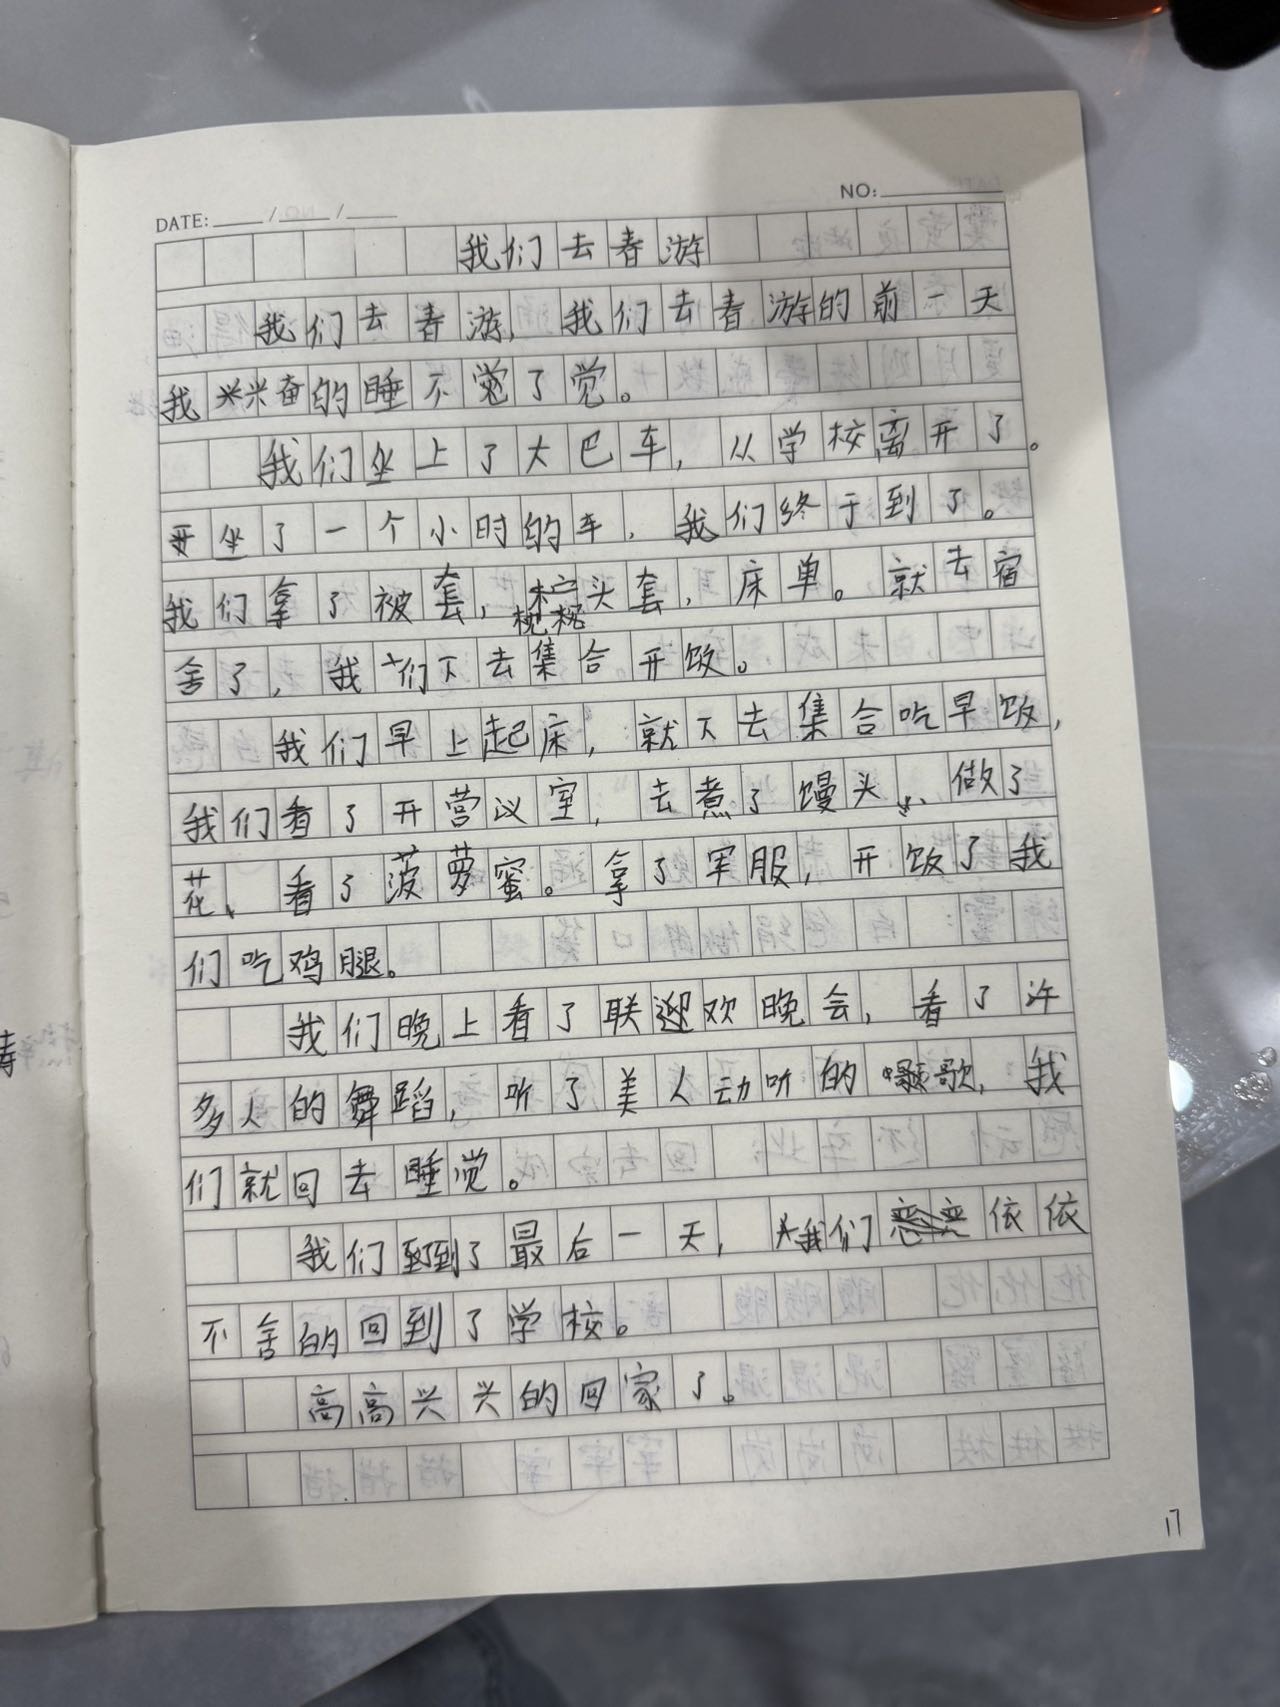 DATE: / /
NO:
我们去春游
我们去春游，我们去春游的前一天
我兴奋的睡不觉了觉。
我们坐上了大巴车，从学校离开了。
坐了一个小时的车，我们终于到了。
我们拿了被套，枕头套，床单。就去宿
舍了，我们下去集合开饭。
我们早上起床，就下去集合吃早饭，
我们看了开营议室，去煮了馒头、做了
花、看了菠萝蜜。拿了军服，开饭了我
们吃鸡腿。
我们晚上看了联迎欢晚会，看了许
多人的舞蹈，听了美人动听的歌，我
们就回去睡觉。
我们到了最后一天，我们依依
不舍的回到了学校。
高高兴兴的回家了。
17